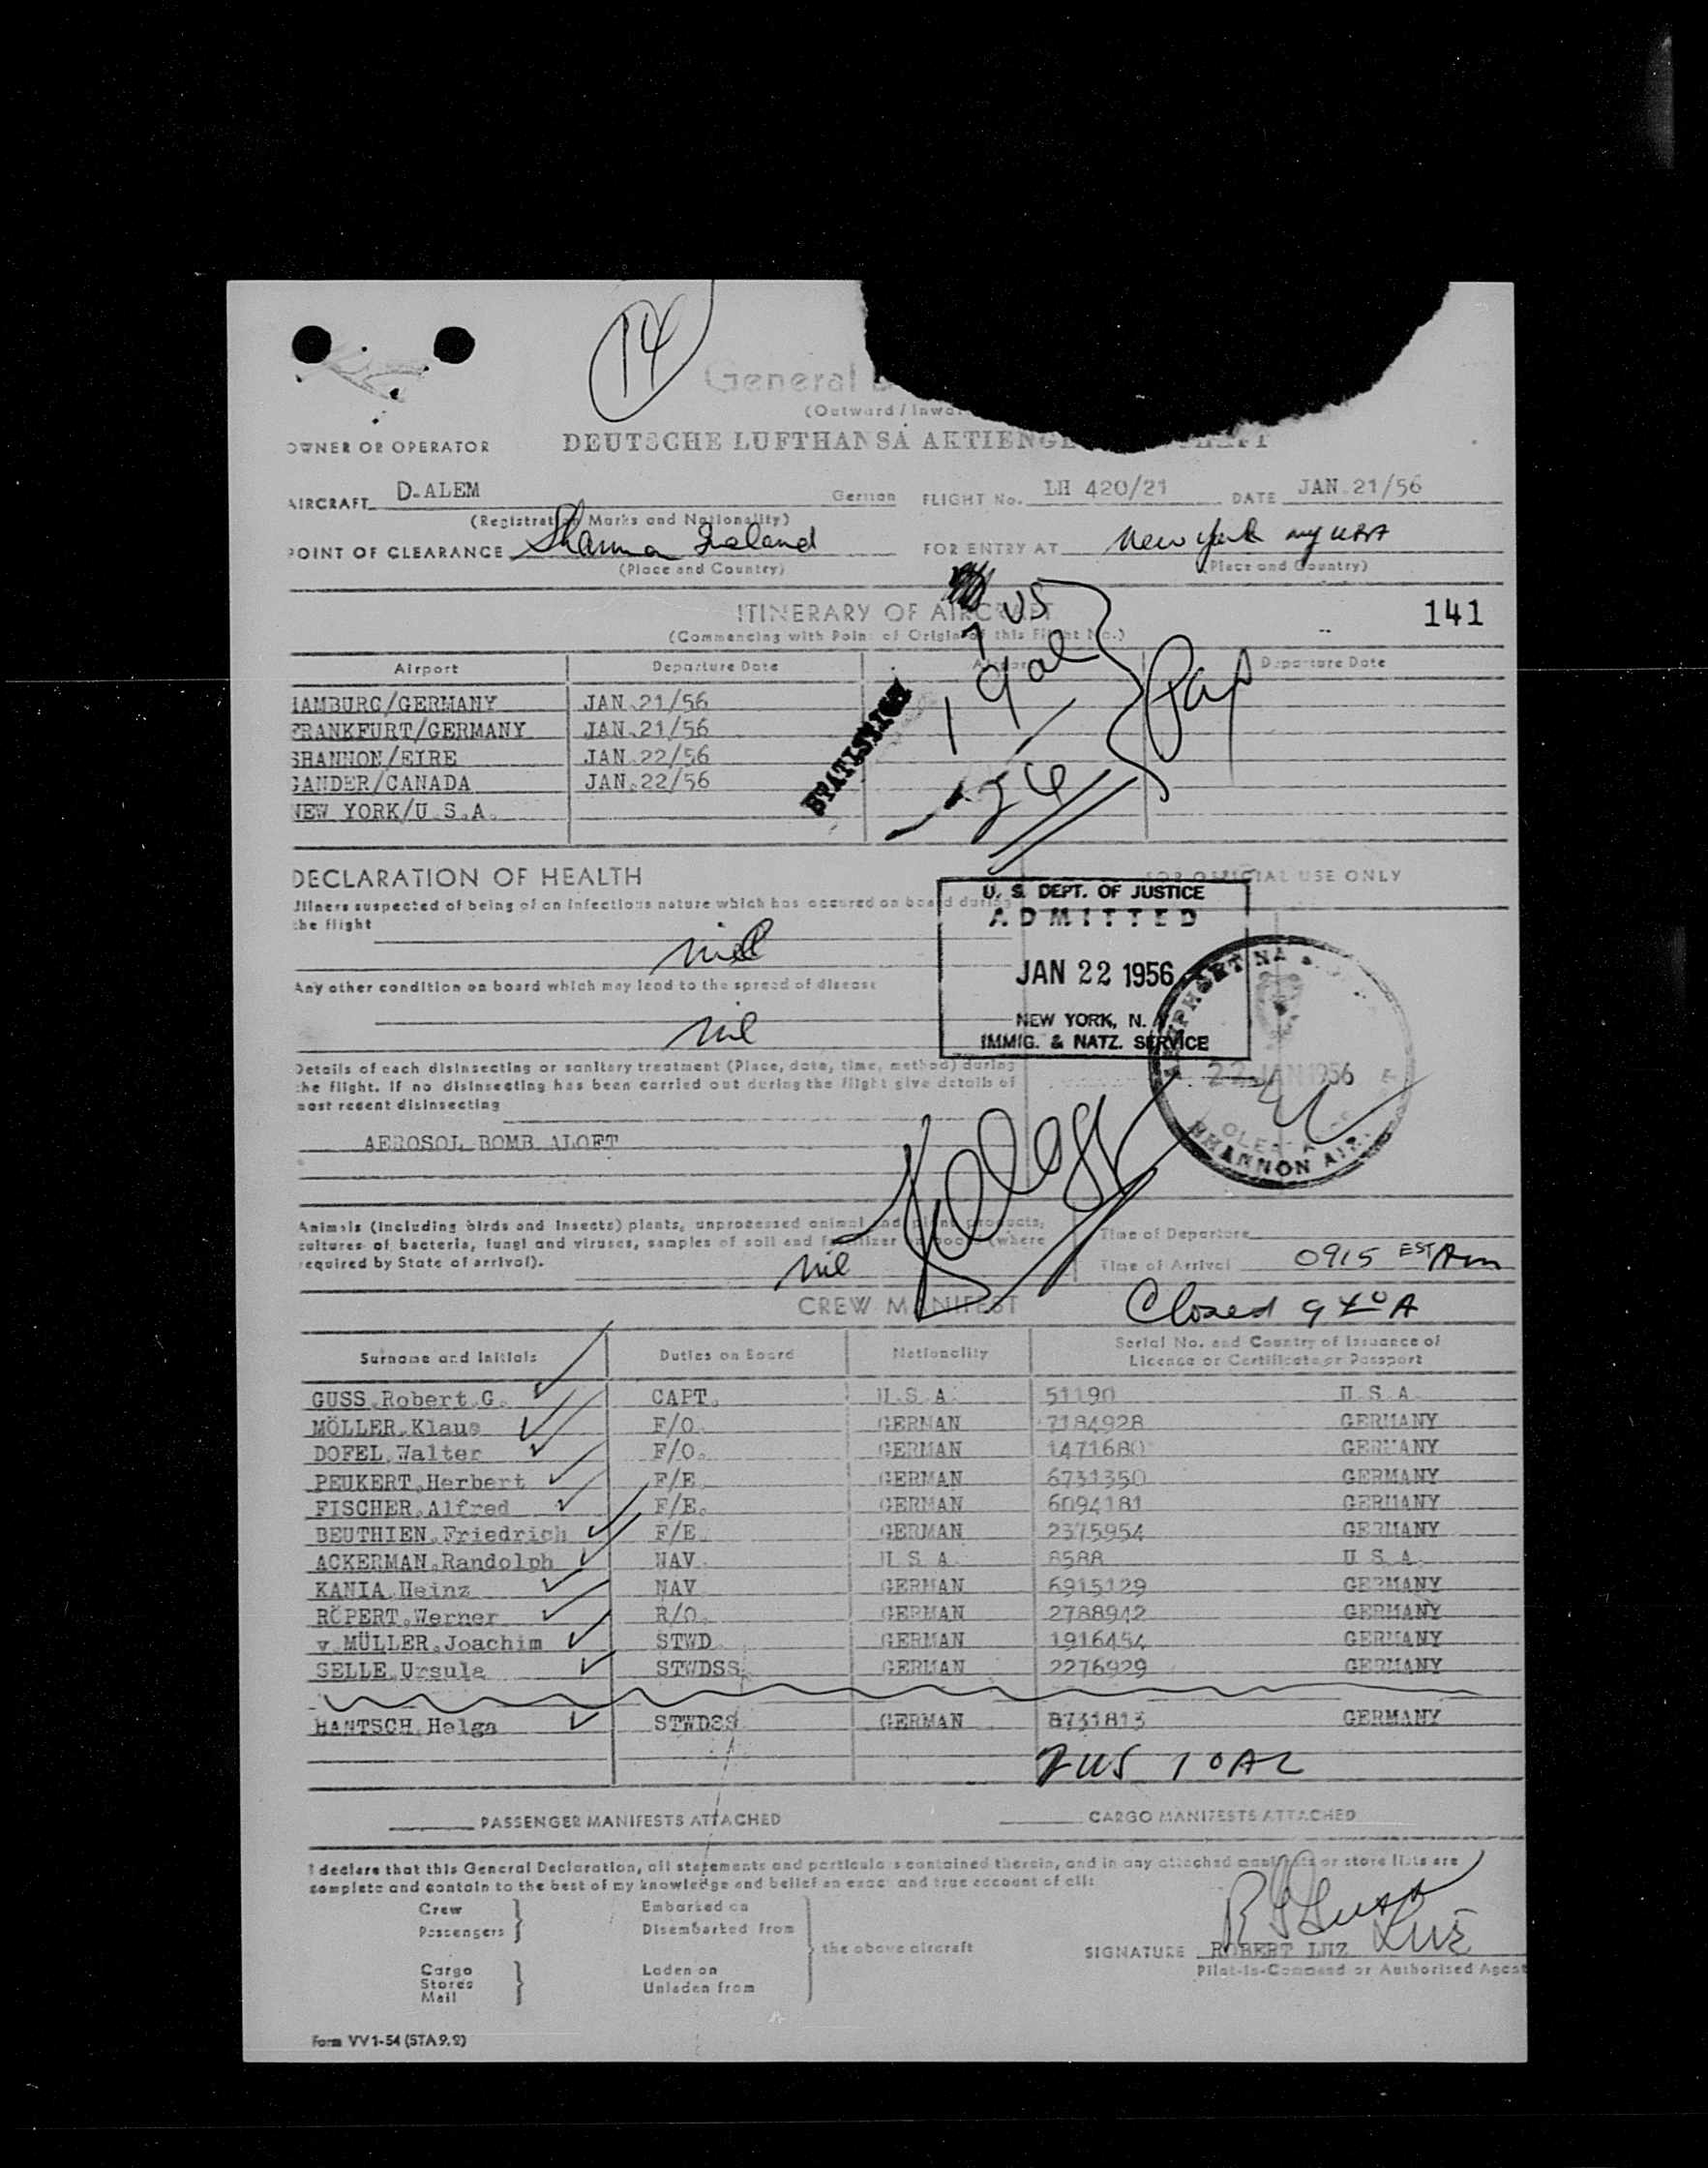 14
General
(Outward / Inwa
OWNER OR OPERATOR DEUTSCHE LUFTHANSA AKTIENGE
AIRCRAFT D-ALEM German FLIGHT No. LH 420/21 DATE JAN.21/56
(Registration Marks and Nationality)
POINT OF CLEARANCE Shannon Ireland FOR ENTRY AT New York ny USA
(Place and Country) (Place and Country)
ITINERARY OF AIRCRAFT 141
(Commencing with Point of Origin of this Flight No.)
7 US
Airport Departure Date Airport Departure Date
HAMBURG/GERMANY JAN.21/56
FRANKFURT/GERMANY JAN.21/56
SHANNON/EIRE JAN.22/56
GANDER/CANADA JAN.22/56
NEW YORK/U.S.A.
Pax
DECLARATION OF HEALTH FOR OFFICIAL USE ONLY
Illness suspected of being of an infectious nature which has occured on board during
the flight
nil
Any other condition on board which may lead to the spread of disease
nil
U. S. DEPT. OF JUSTICE
ADMITTED
JAN 22 1956
NEW YORK, N.
IMMIG. & NATZ. SERVICE
22 JAN 1956
SHANNON AIR
Details of each disinsecting or sanitary treatment (Place, date, time, method) during
the flight. If no disinsecting has been carried out during the flight give details of
most recent disinsecting
AEROSOL BOMB ALOFT
Animals (including birds and insects) plants, unprocessed animal and plant products,
cultures of bacteria, fungi and viruses, samples of soil and fertilizer on board (where
required by State of arrival).
nil
Time of Departure
Time of Arrival 0915 EST Am
CREW MANIFEST Closed 940 A
Surname and Initials Duties on Board Nationality Serial No. and Country of Issuance of
Licence or Certificate or Passport
GUSS.Robert.G. CAPT. U.S.A. 51190 U.S.A.
MÖLLER.Klaus F/O. GERMAN 7184928 GERMANY
DOFEL.Walter F/O. GERMAN 1471680 GERMANY
PEUKERT.Herbert F/E. GERMAN 6731350 GERMANY
FISCHER.Alfred F/E. GERMAN 6094181 GERMANY
BEUTHIEN.Friedrich F/E. GERMAN 2375954 GERMANY
ACKERMAN.Randolph NAV. U.S.A. 8588 U.S.A.
KANIA.Heinz NAV GERMAN 6915129 GERMANY
RÖPERT.Werner R/O. GERMAN 2788942 GERMANY
v.MÜLLER.Joachim STWD GERMAN 1916454 GERMANY
SELLE.Ursula STWDSS. GERMAN 2276929 GERMANY
HANTSCH.Helga STWDSS GERMAN 8731813 GERMANY
2 US 10 AL
PASSENGER MANIFESTS ATTACHED CARGO MANIFESTS ATTACHED
I declare that this General Declaration, all statements and particulars contained therein, and in any attached manifests or store lists are
complete and contain to the best of my knowledge and belief an exact and true account of all:
Crew Embarked on
Passengers Disembarked from
the above aircraft
Cargo Laden on
Stores Unladen from
Mail
SIGNATURE ROBERT LUZ
Pilot-in-Command or Authorised Agent
Form VV 1-54 (STA 9.2)